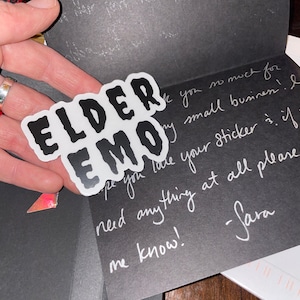 ELDER
EMO
you so much for
my small business! I
you love your sticker :). if
need anything at all please
me know!
-Sara